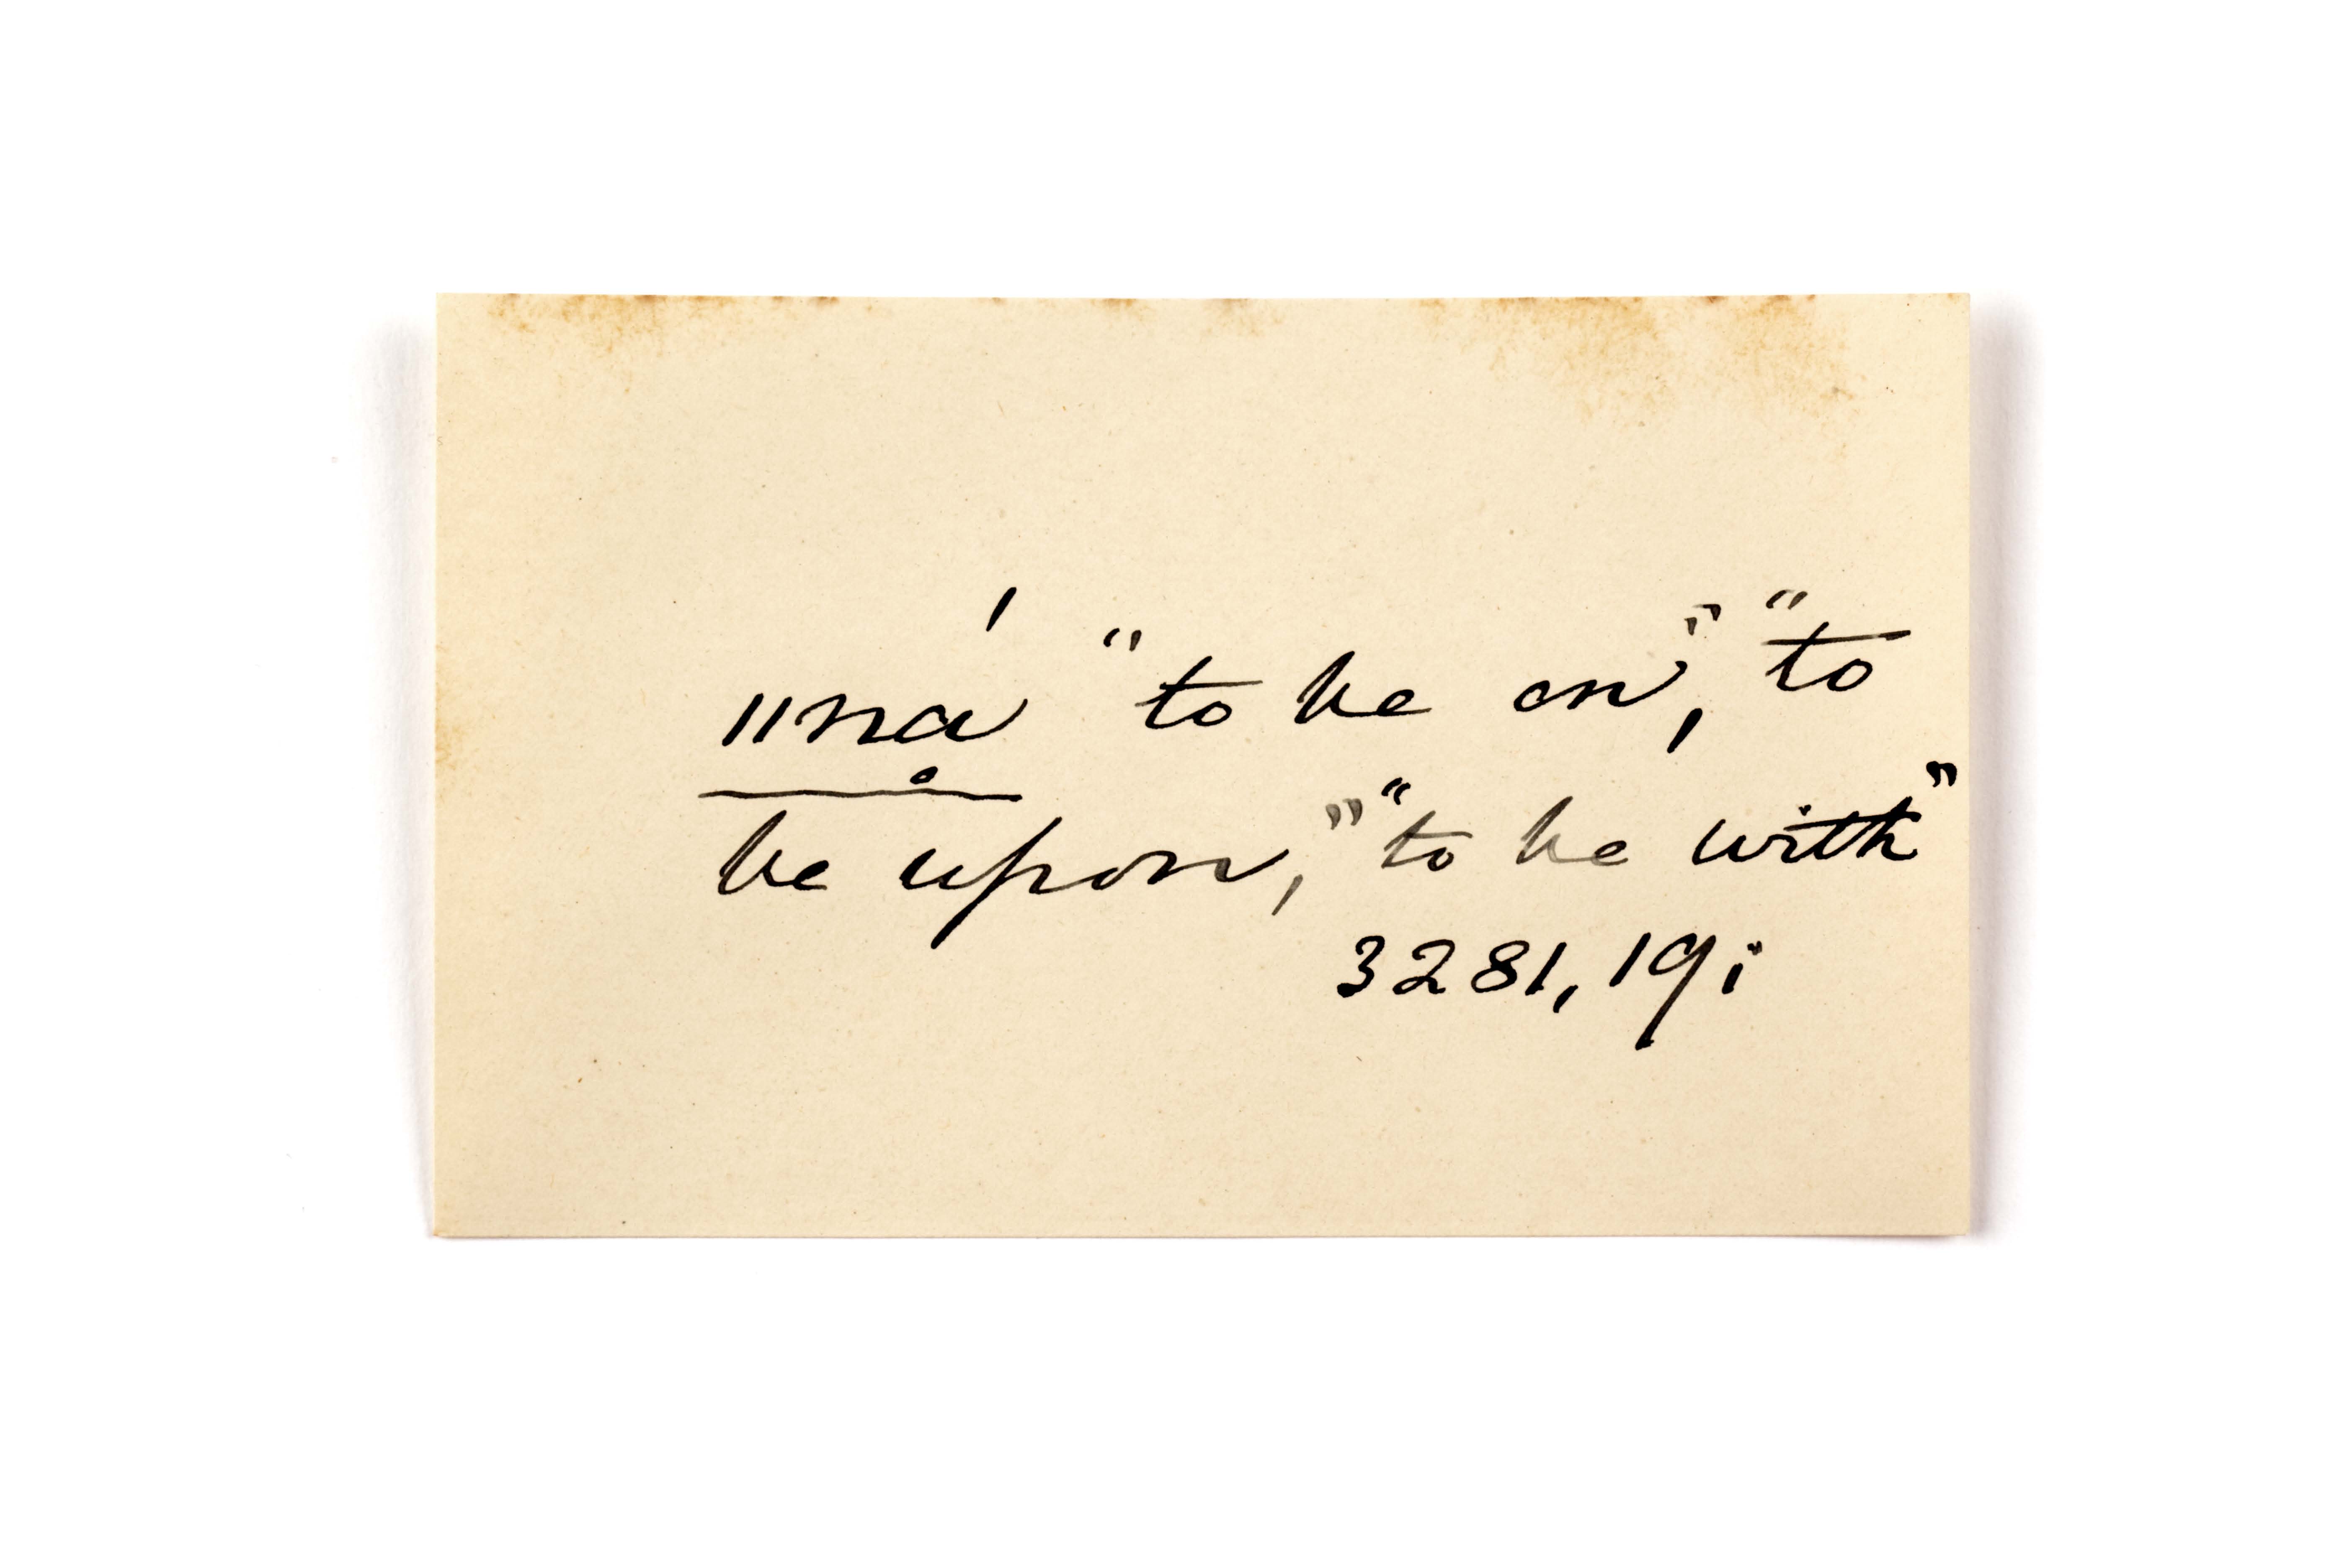 ıınạ́ "to be on", "to
be upon," "to be with"
3281, 19i